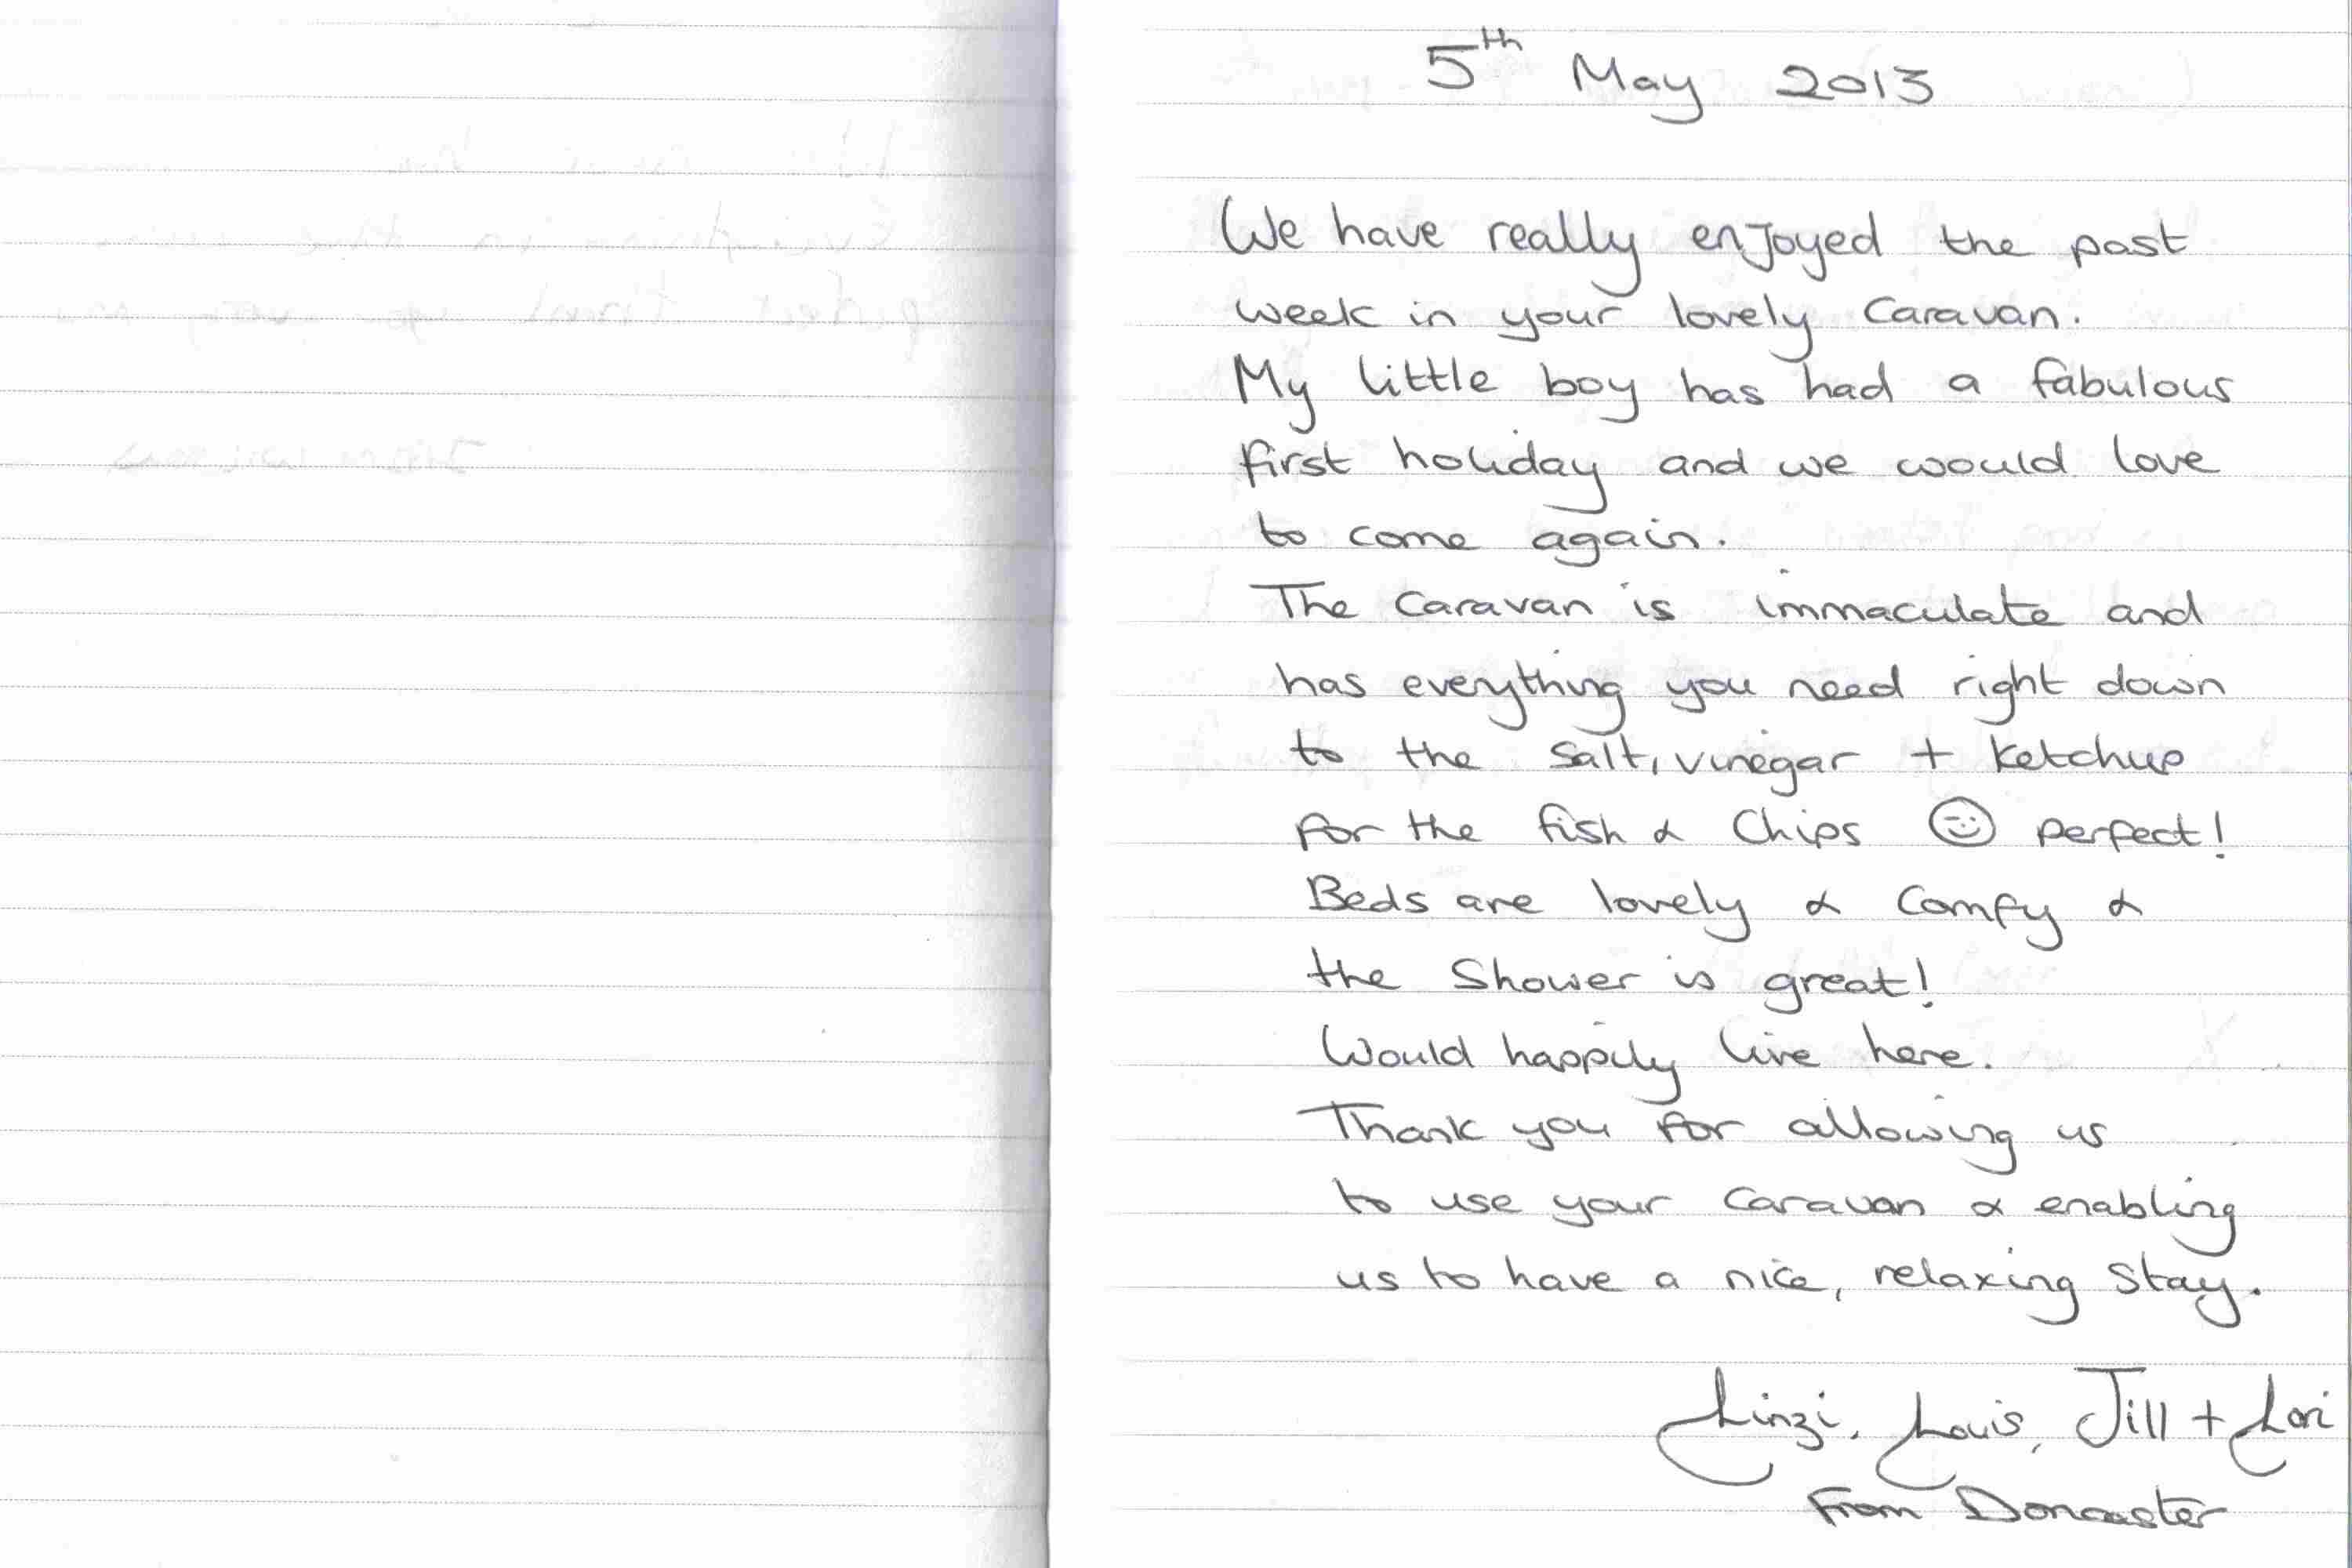 5th May 2013
We have really enjoyed the past
week in your lovely Caravan.
My little boy has had a fabulous
first holiday and we would love
to come again.
The Caravan is immaculate and
has everything you need right down
to the Salt, vinegar + Ketchup
for the fish & Chips ☺ perfect!
Beds are lovely & Comfy &
the Shower is great!
Would happily live here.
Thank you for allowing us
to use your Caravan & enabling
us to have a nice, relaxing Stay.
Linzi, Louis, Jill + Lori
From Doncaster